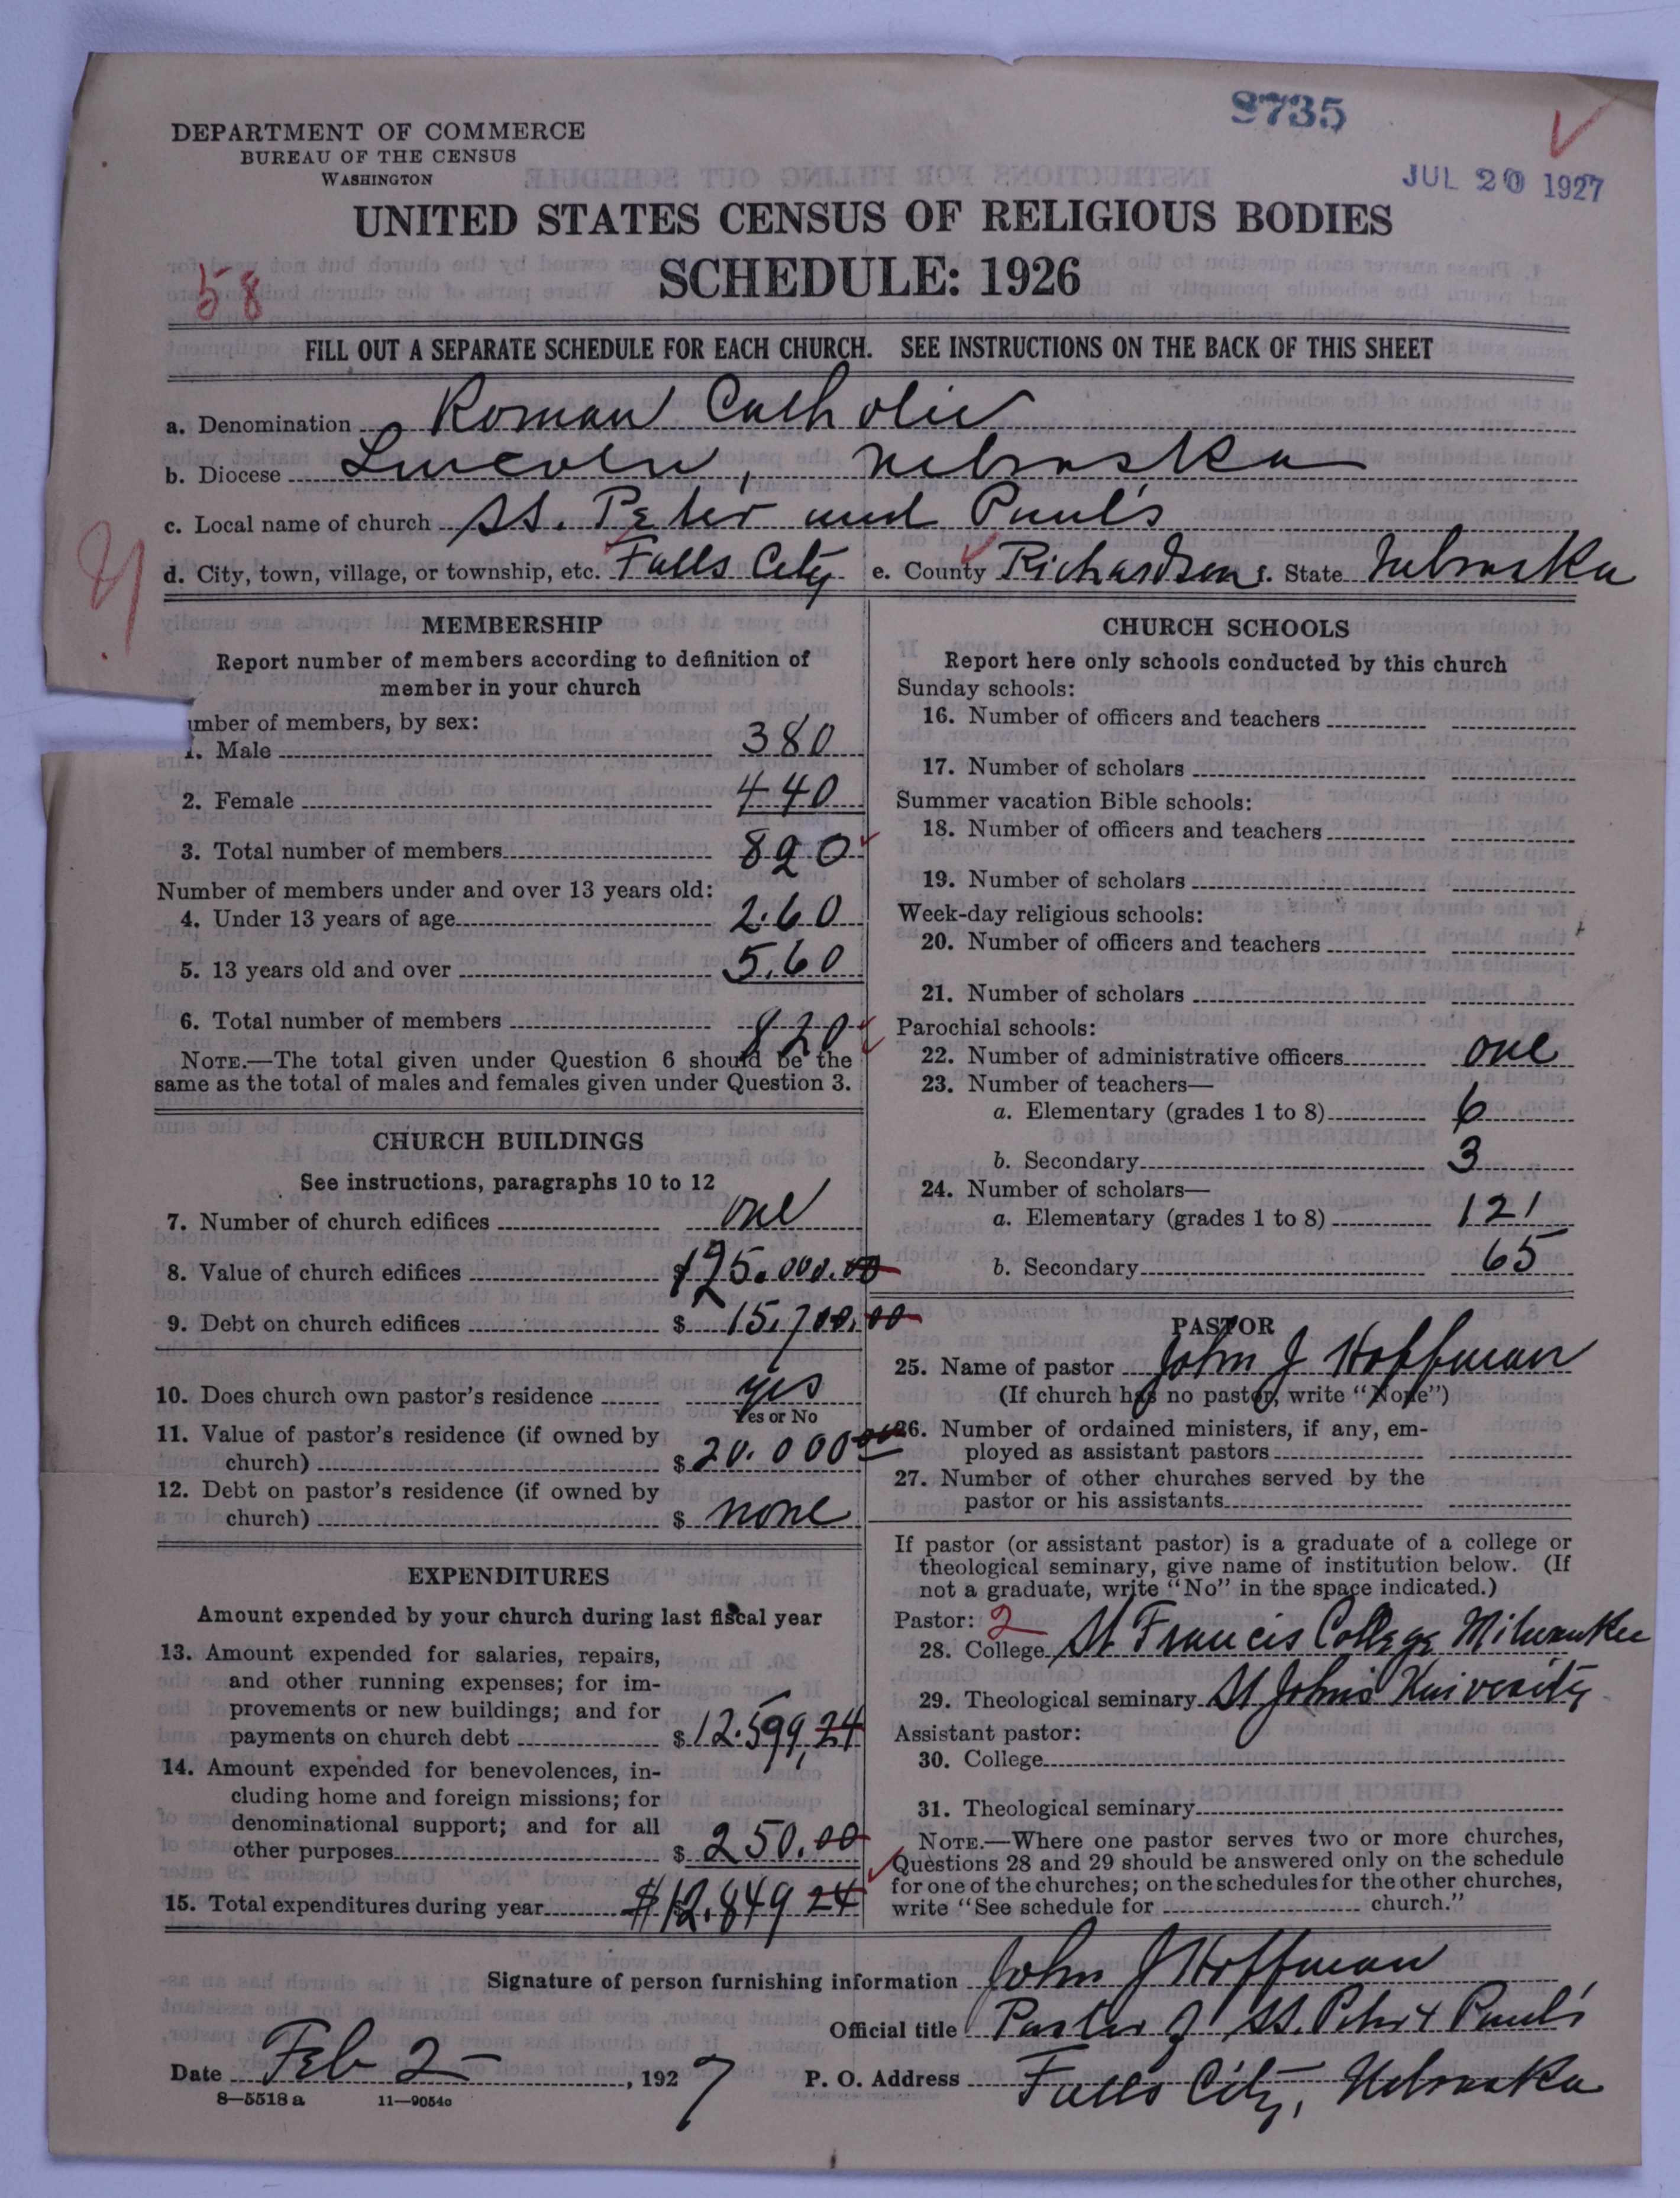 8735
JUL 20 1927
DEPARTMENT OF COMMERCE
BUREAU OF THE CENSUS
WASHINGTON
UNITED STATES CENSUS OF RELIGIOUS BODIES
SCHEDULE: 1926
58
FILL OUT A SEPARATE SCHEDULE FOR EACH CHURCH. SEE INSTRUCTIONS ON THE BACK OF THIS SHEET
a. Denomination Roman Catholic
b. Diocese Lincoln, Nebraska
c. Local name of church SS. Peter and Paul's
d. City, town, village, or township, etc. Falls City e. County Richardson f. State Nebraska
MEMBERSHIP
Report number of members according to definition of
member in your church
umber of members, by sex:
1. Male 380
2. Female 440
3. Total number of members 820
Number of members under and over 13 years old:
4. Under 13 years of age 260
5. 13 years old and over 560
6. Total number of members 820
NOTE.—The total given under Question 6 should be the
same as the total of males and females given under Question 3.
CHURCH BUILDINGS
See instructions, paragraphs 10 to 12
7. Number of church edifices one
8. Value of church edifices $125.000.00
9. Debt on church edifices $ 15,700.00
10. Does church own pastor's residence yes
Yes or No
11. Value of pastor's residence (if owned by
church) $ 20.000 00
12. Debt on pastor's residence (if owned by
church) $ none
EXPENDITURES
Amount expended by your church during last fiscal year
13. Amount expended for salaries, repairs,
and other running expenses; for im-
provements or new buildings; and for
payments on church debt $ 12.599,24
14. Amount expended for benevolences, in-
cluding home and foreign missions; for
denominational support; and for all
other purposes $ 250.00
15. Total expenditures during year $12.849 24
CHURCH SCHOOLS
Report here only schools conducted by this church
Sunday schools:
16. Number of officers and teachers
17. Number of scholars
Summer vacation Bible schools:
18. Number of officers and teachers
19. Number of scholars
Week-day religious schools:
20. Number of officers and teachers
21. Number of scholars
Parochial schools:
22. Number of administrative officers one
23. Number of teachers—
a. Elementary (grades 1 to 8) 6
b. Secondary 3
24. Number of scholars—
a. Elementary (grades 1 to 8) 121
b. Secondary 65
PASTOR
25. Name of pastor John J Hoffman
(If church has no pastor, write "None")
26. Number of ordained ministers, if any, em-
ployed as assistant pastors
27. Number of other churches served by the
pastor or his assistants
If pastor (or assistant pastor) is a graduate of a college or
theological seminary, give name of institution below. (If
not a graduate, write "No" in the space indicated.)
Pastor: 2
28. College St Francis College Milwaukee
29. Theological seminary St Johns University
Assistant pastor:
30. College
31. Theological seminary
NOTE.—Where one pastor serves two or more churches,
Questions 28 and 29 should be answered only on the schedule
for one of the churches; on the schedules for the other churches,
write "See schedule for church."
Signature of person furnishing information John J Hoffman
Official title Pastor of SS. Peter & Paul's
Date Feb 2, 1927 P. O. Address Falls City, Nebraska
8—5518 a 11—9054c